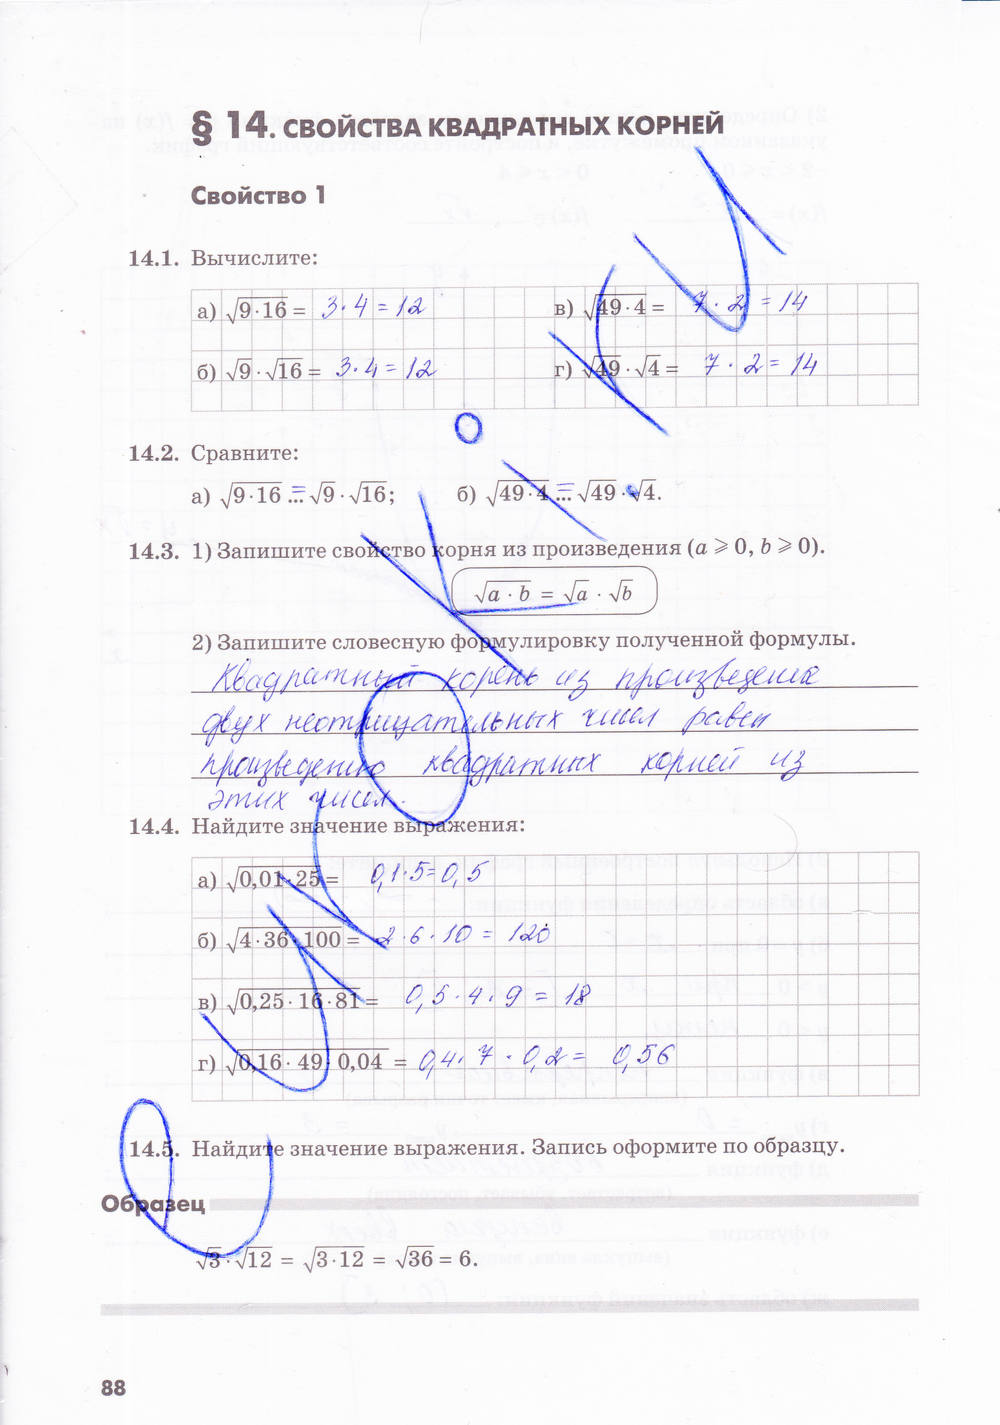 § 14. СВОЙСТВА КВАДРАТНЫХ КОРНЕЙ
Свойство 1
14.1. Вычислите:
а) √9·16 = 3·4=12
в) √49·4 = 7·2=14
б) √9·√16 = 3·4=12
г) √49·√4 = 7·2=14
14.2. Сравните:
а) √9·16 = √9·√16; б) √49·4 = √49·√4.
14.3. 1) Запишите свойство корня из произведения (a ⩾ 0, b ⩾ 0).
√a·b = √a·√b
2) Запишите словесную формулировку полученной формулы.
Квадратный корень из произведения
двух неотрицательных чисел равен
произведению квадратных корней из
этих чисел.
14.4. Найдите значение выражения:
а) √0,01·25 = 0,1·5=0,5
б) √4·36·100 = 2·6·10=120
в) √0,25·16·81 = 0,5·4·9=18
г) √0,16·49·0,04 = 0,4·7·0,2=0,56
14.5. Найдите значение выражения. Запись оформите по образцу.
Образец
√3·√12 = √3·12 = √36 = 6.
88